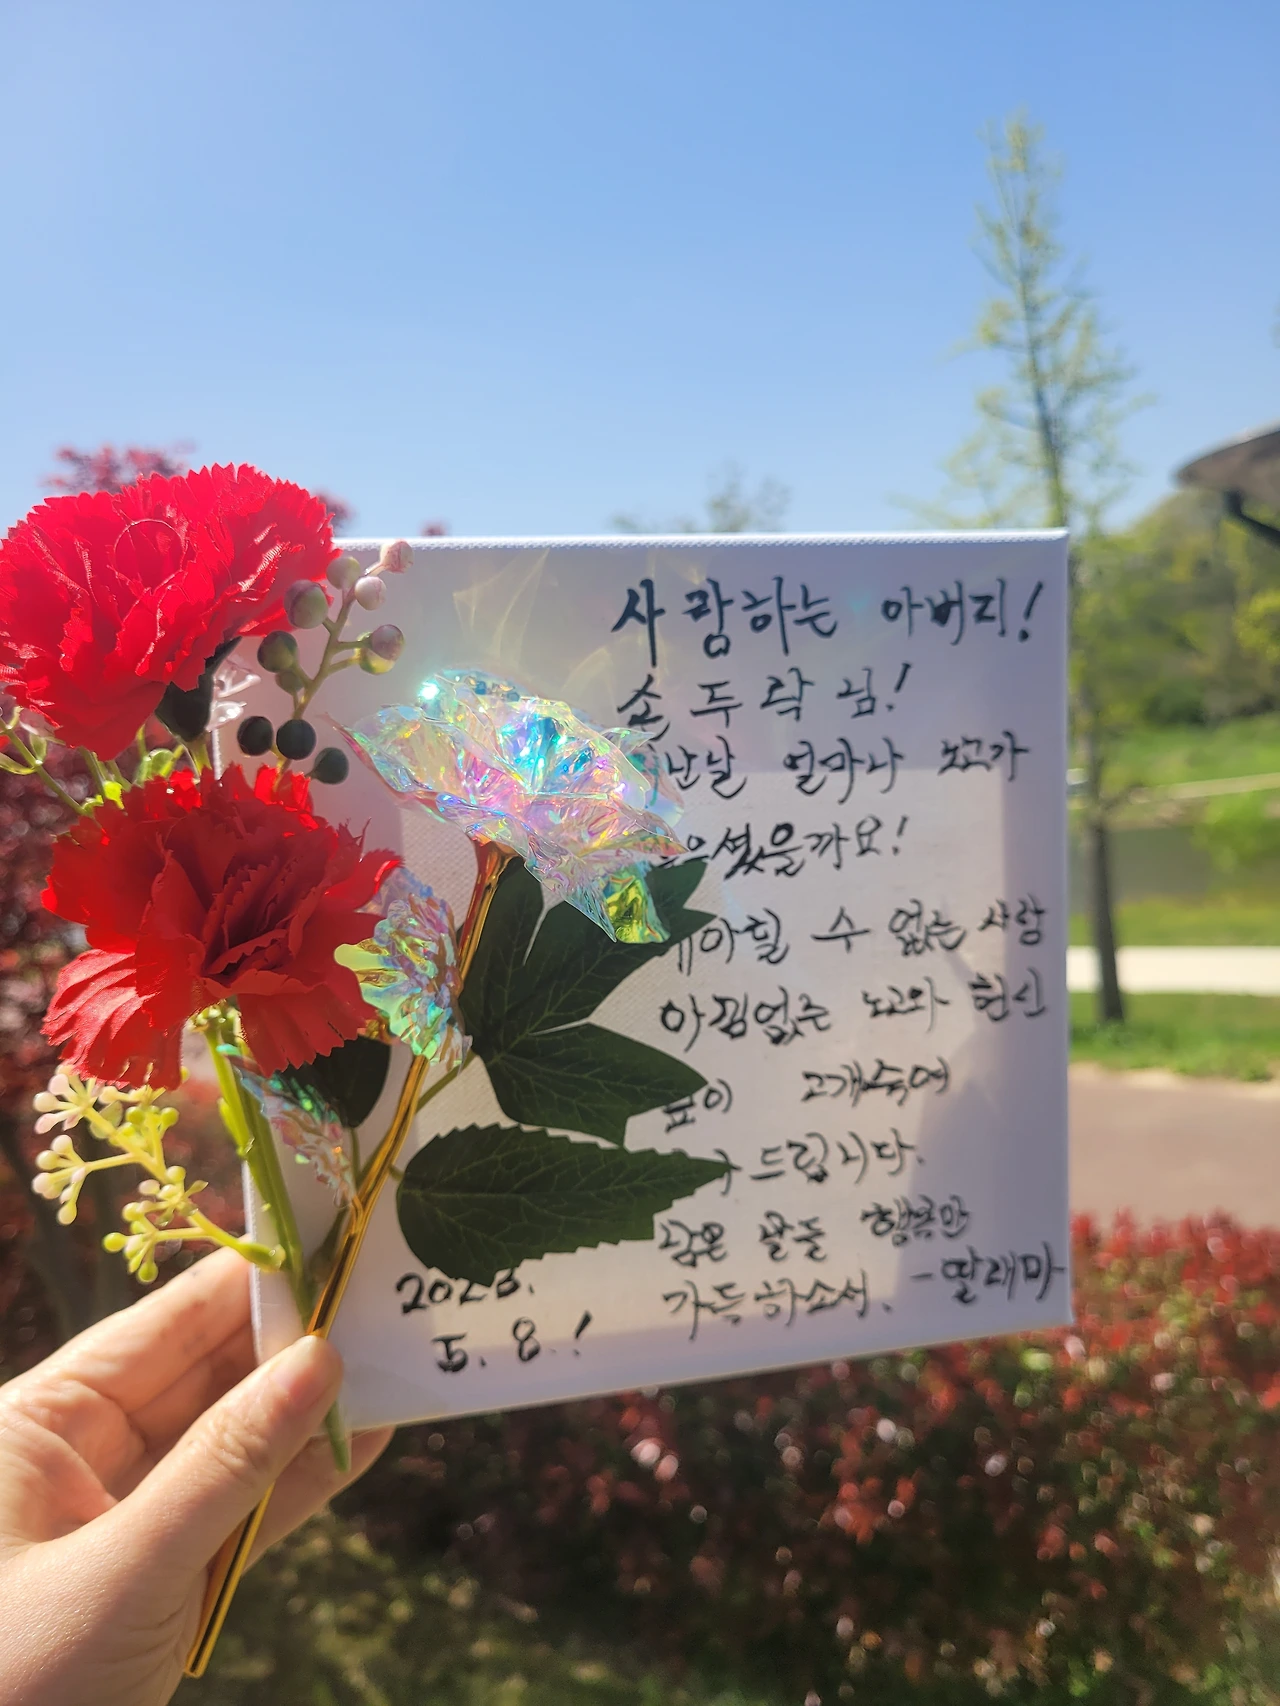 사랑하는 아버지!
손두락님!
지난날 얼마나 노고가
많으셨을까요!
헤아릴 수 없는 사랑
아낌없는 노고와 헌신
깊이 고개숙여
드립니다.
남은 날들 행복만
가득하소서. - 딸래마
5. 8. !